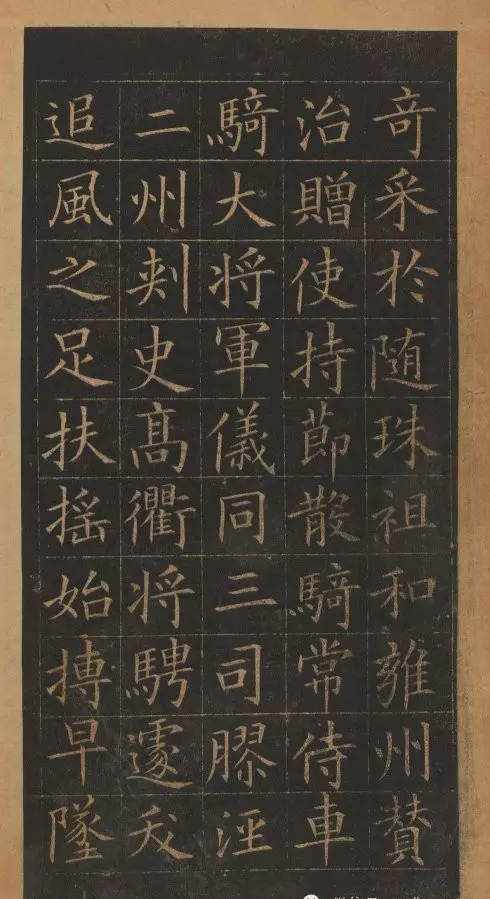 竒采於随珠祖和雍州賛
治贈使持節散騎常侍車
騎大将軍儀同三司膠涇
二州刾史髙衢将騁遽夭
追風之足扶摇始摶早墜